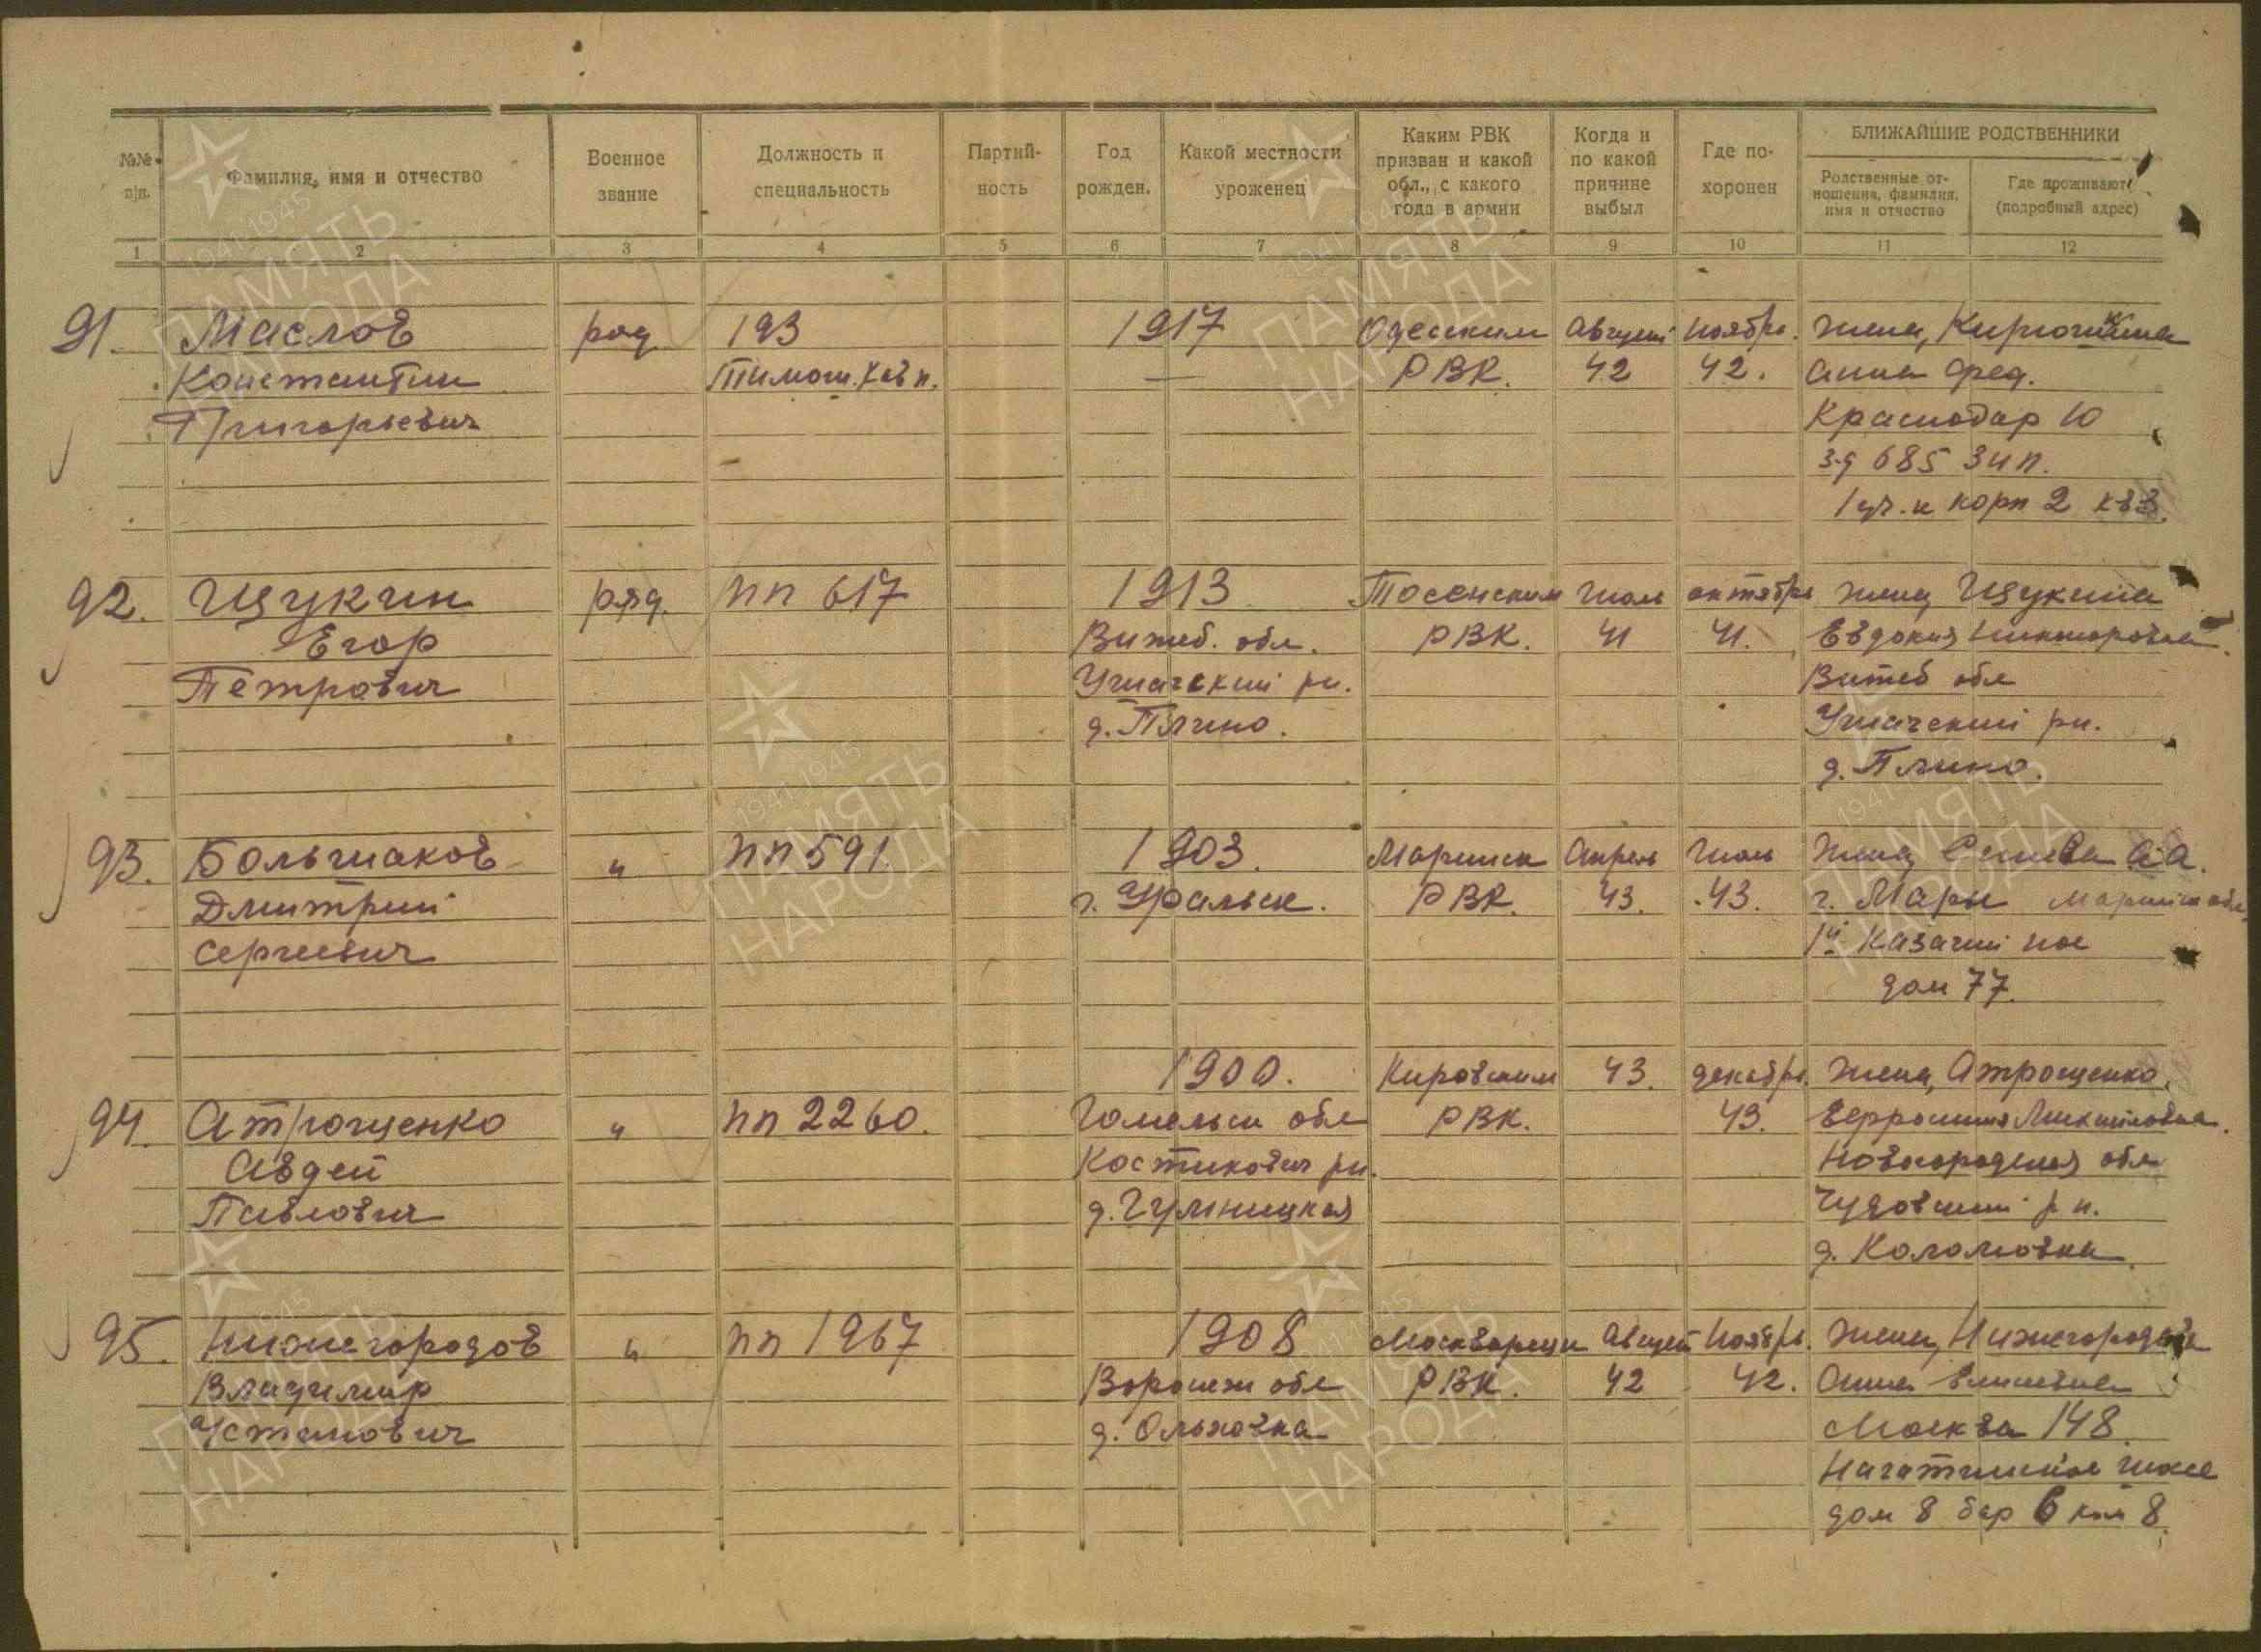 №№ п/п.
Фамилия, имя и отчество
Военное звание
Должность и специальность
Партий-ность
Год рожден.
Какой местности уроженец
Каким РВК призван и какой обл., с какого года в армии
Когда и по какой причине выбыл
Где по-хоронен
БЛИЖАЙШИЕ РОДСТВЕННИКИ
Родственные от-ношения, фамилия, имя и отчество
Где проживают (подробный адрес)
1 2 3 4 5 6 7 8 9 10 11 12
91. Маслов ряд 193 1917 Одесским Август ноябрь. жена,
Константин Тимош. — РВК. 42 42. Анна Фед.
Григорьевич Краснодар 10
з-д 685 ЗИП.
корп 2 кв 3.
92. Щукин ряд. пп 617 1913 Тосенским Июль октябрь жена Щукина
Егор Витеб. обл. РВК. 41 41. Евдокия Никифоровна
Петрович Ушачский рн. Витеб обл
д. Плино. Ушачский рн.
д. Плино.
93. Большаков " пп 591 1903. Марийск Апрель Июль жена А.
Дмитрий г. Уральск. РВК. 43. 43. г. Мары Марийск обл.
Сергеевич 1й Казачий пос
дом 77.
1900. Кировским 43. декабрь. жена, Атрощенко.
94. Атрощенко " пп 2260. Гомельск обл РВК. 43. Михайловна.
Авдей Костюкович рн. Новгородская обл
Павлович д. Чудовский р н.
д. Коломовка.
95. Нижегородов " пп 1967 1908 Москворецк Август Ноябрь. жена, Нижегородова
Владимир Воронеж обл РВК. 42 42. Анна
Устинович д. Ольховка Москва 148.
Нагатинское шоссе
дом 8 бар 6 ком 8.
1941-1945
ПАМЯТЬ
НАРОДА